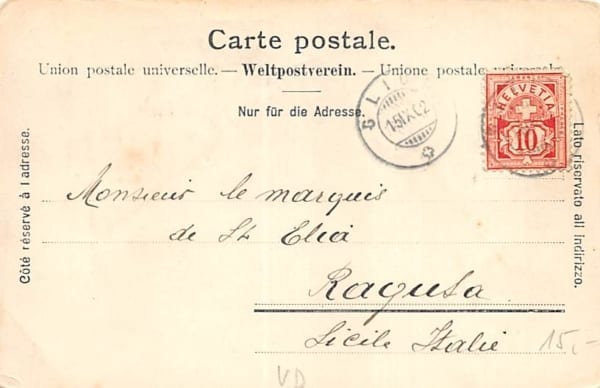 Carte postale.
Union postale universelle. — Weltpostverein. — Unione postale universale
Nur für die Adresse.
Côté réservé à l adresse.
Lato riservato all indirizzo.
15 IX 02
HELVETIA
10
Monsieur le marquis
de St Elia
Ragusa
Sicile Italie
15,-
VD